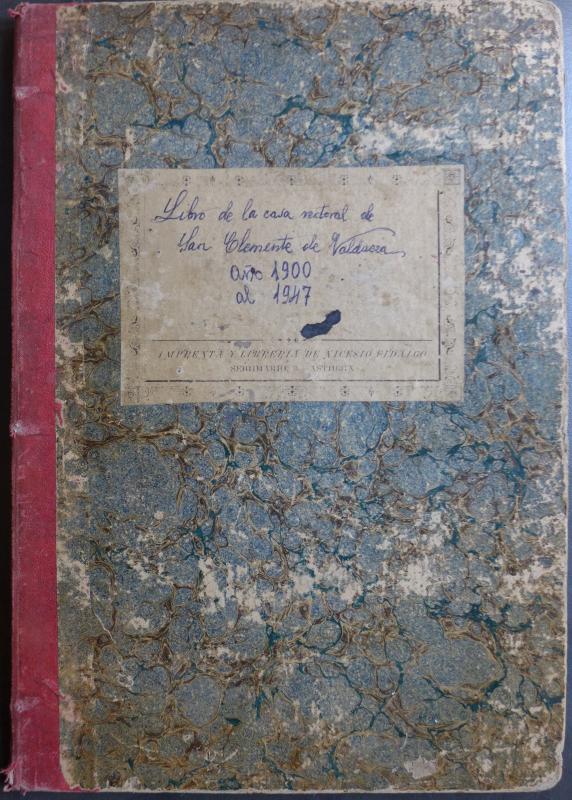 Libro de la casa rectoral de
San Clemente de Valdueza
año 1900
al 1947
IMPRENTA Y LIBRERIA DE NICESIO FIDALGO
ASTORGA